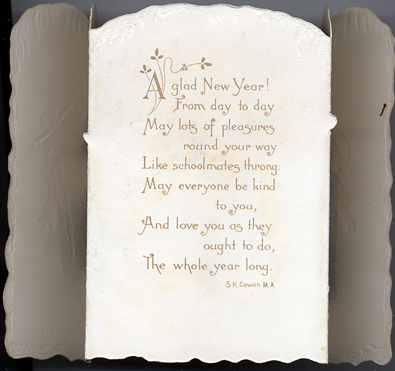 A glad New Year!
From day to day
May lots of pleasures
round your way
Like schoolmates throng:
May everyone be kind
to you,
And love you as they
ought to do,
The whole year long.
S.K. Cowan. M.A.